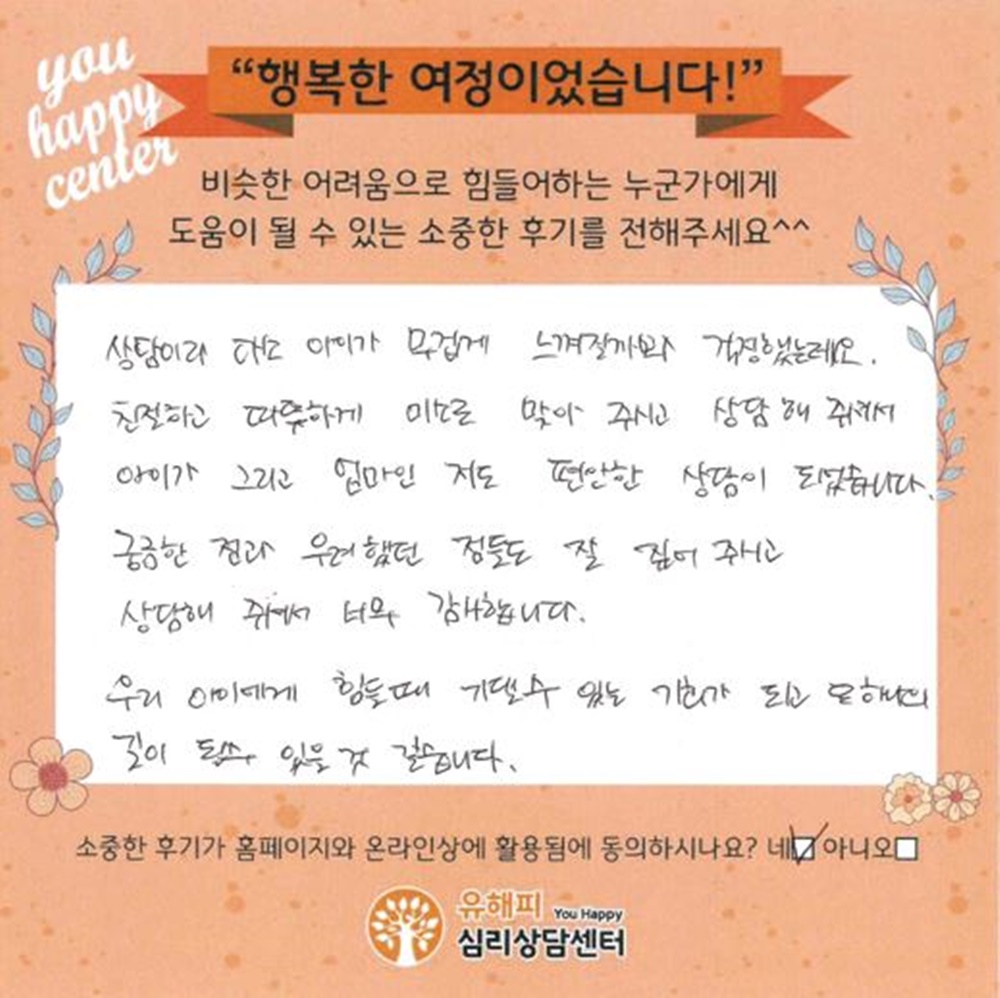 you
happy
center
“행복한 여정이었습니다!”
비슷한 어려움으로 힘들어하는 누군가에게
도움이 될 수 있는 소중한 후기를 전해주세요^^
상담이라 해서 아이가 무겁게 느껴질까봐 걱정했는데요.
친절하고 따뜻하게 미소로 맞아 주시고 상담해 줘서
아이가 그리고 엄마인 저도 편안한 상담이 되었습니다.
궁금한 점과 우려했던 점들도 잘 짚어 주시고
상담해 줘서 너무 감사합니다.
우리 아이에게 힘들때 기댈수 있는 기회가 되고 또 하나의
길이 될수 있을 것 같습니다.
소중한 후기가 홈페이지와 온라인상에 활용됨에 동의하시나요? 네☑ 아니오☐
유해피 You Happy
심리상담센터